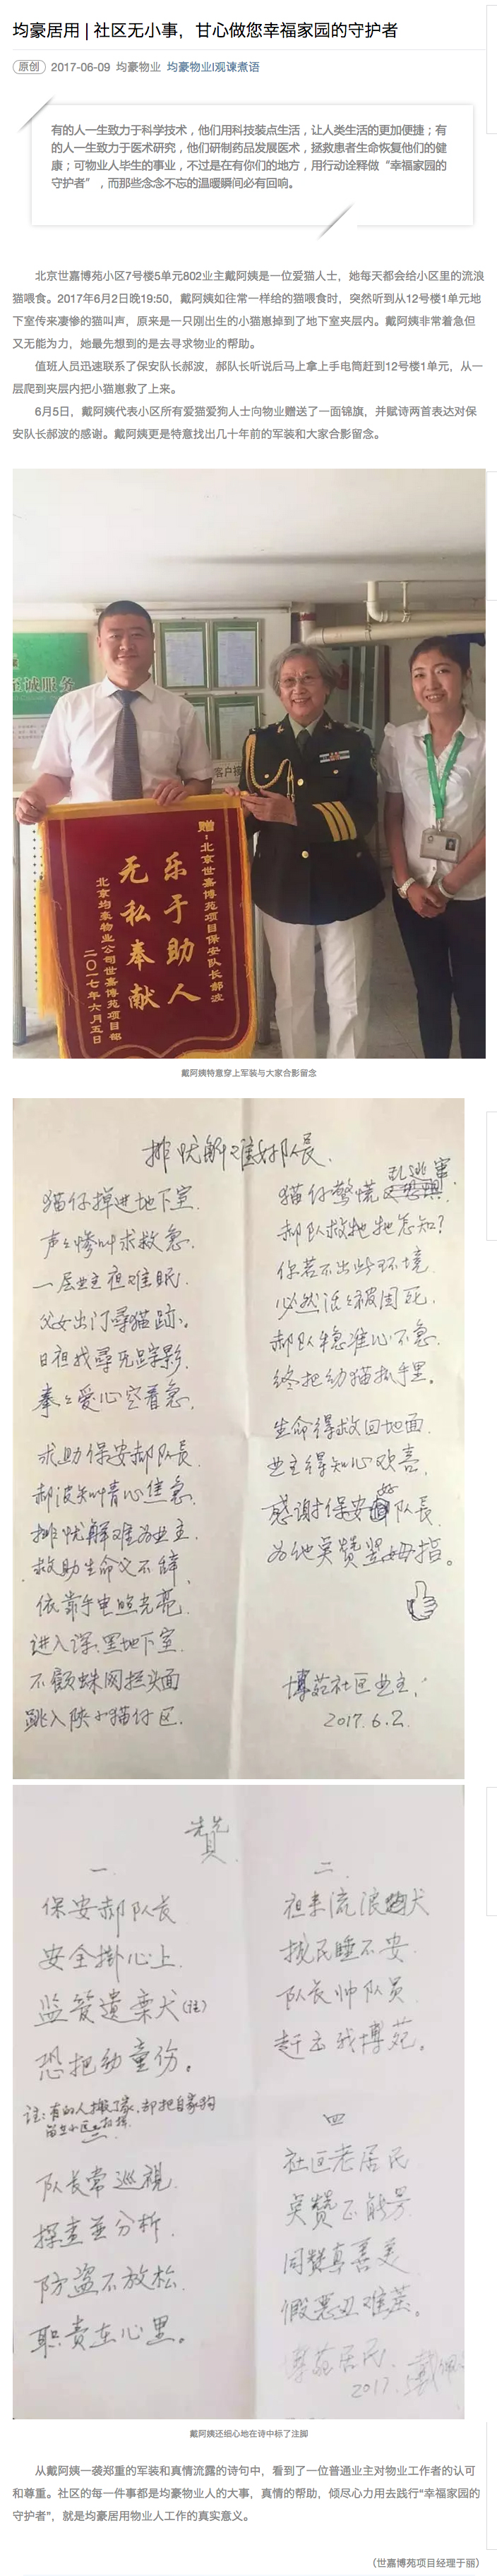 均豪居用 | 社区无小事，甘心做您幸福家园的守护者
原创 2017-06-09 均豪物业 均豪物业I观谏煮语
有的人一生致力于科学技术，他们用科技装点生活，让人类生活的更加便捷；有
的人一生致力于医术研究，他们研制药品发展医术，拯救患者生命恢复他们的健
康；可物业人毕生的事业，不过是在有你们的地方，用行动诠释做“幸福家园的
守护者”，而那些念念不忘的温暖瞬间必有回响。
北京世嘉博苑小区7号楼5单元802业主戴阿姨是一位爱猫人士，她每天都会给小区里的流浪
猫喂食。2017年6月2日晚19:50，戴阿姨如往常一样给的猫喂食时，突然听到从12号楼1单元地
下室传来凄惨的猫叫声，原来是一只刚出生的小猫崽掉到了地下室夹层内。戴阿姨非常着急但
又无能为力，她最先想到的是去寻求物业的帮助。
值班人员迅速联系了保安队长郝波，郝队长听说后马上拿上手电筒赶到12号楼1单元，从一
层爬到夹层内把小猫崽救了上来。
6月5日，戴阿姨代表小区所有爱猫爱狗人士向物业赠送了一面锦旗，并赋诗两首表达对保
安队长郝波的感谢。戴阿姨更是特意找出几十年前的军装和大家合影留念。
至诚服务
客户投
赠：北京世嘉博苑项目保安队长郝波
乐于助人
无私奉献
北京均豪物业公司世嘉博苑项目部
二〇一七年六月五日
戴阿姨特意穿上军装与大家合影留念
排忧解难好郝队长
猫仔掉进地下室.
声々惨叫求救急.
一层业主夜难眠.
父女出门尋猫跡.
日夜找尋无踪影.
拳々爱心空着急.
求助保安郝队長
郝波知情心焦急.
排忧解难为业主.
救助生命义不辞.
依靠手电照光亮.
进入深黑地下室.
不顧蛛网拦头面
跳入陕小猫仔区.
猫仔警慌乱逃窜.
郝队救牠牠怎知?
你若不出此环境
必然活々被困死.
郝队稳准心不急.
终把幼猫抓手里。
生命得救回地面.
业主得知心欢喜.
感谢保安好队長
为他奌赞竖姆指。
博苑社区业主.
2017.6.2.
赞
一.
保安郝队長
安全掛心上.
监管遗棄犬(注)
恐把幼童伤。
注：有的人搬了家，却把自家狗
留在小区
队長常巡視.
探查並分析.
防盗不放松.
职責在心里。
二.
夜来流浪犬
扰民睡不安.
队長帅队员
赶出我博苑。
四
社区老居民
奌赞正能号.
同赞真善美
假悪丑难茬。
博苑居民.
2017.戴
戴阿姨还细心地在诗中标了注脚
从戴阿姨一袭郑重的军装和真情流露的诗句中，看到了一位普通业主对物业工作者的认可
和尊重。社区的每一件事都是均豪物业人的大事，真情的帮助，倾尽心力用去践行“幸福家园的
守护者”，就是均豪居用物业人工作的真实意义。
（世嘉博苑项目经理于丽）